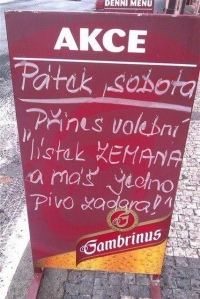 DENNÍ MENU
AKCE
Pátek, sobota
Přines volební
"lístek ZEMANA
a máš jedno
pivo zadara!"
G
Gambrinus